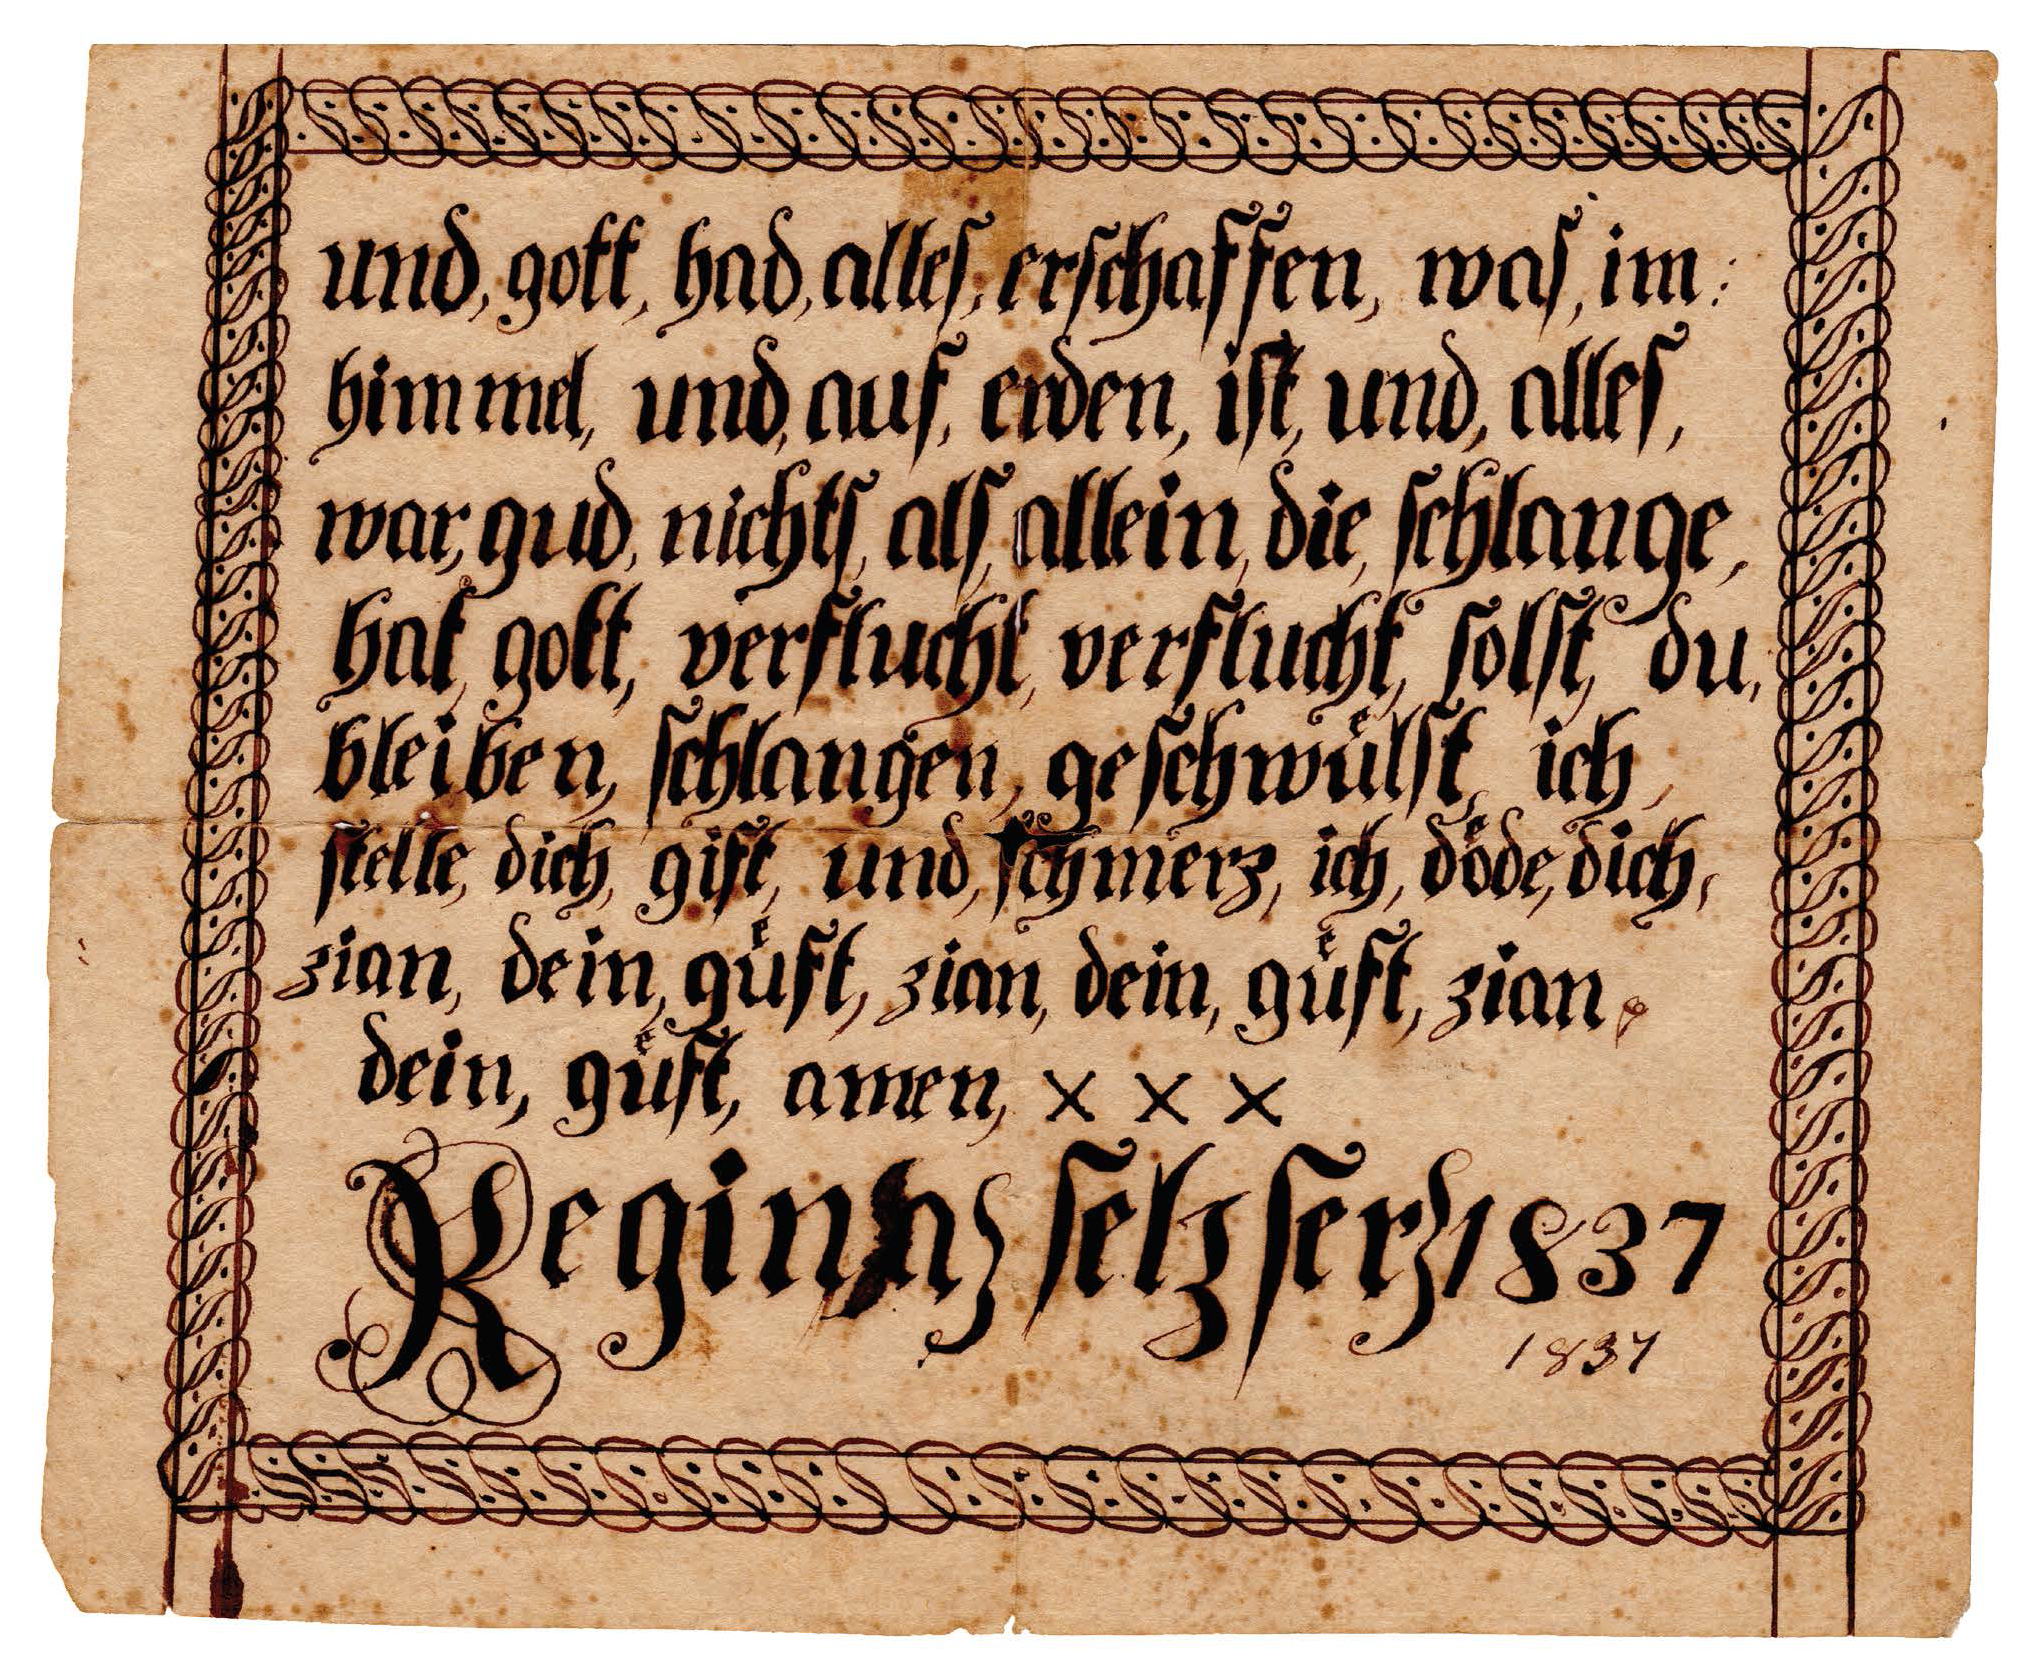 und, gott, had, alles, erschaffen, was, im:
himmel, und, auf, erden, ist, und, alles,
war, gud, nichts, als, allein, die, schlange,
hat, gott, verflucht, verflucht, solst, du,
bleiben, schlangen, geschwülst, ich,
stelle, dich, gift, und, schmerz, ich, döde, dich,
zian, dein, güft, zian, dein, güft, zian,
dein, güft, amen, x x x
selzserz 1837
1837